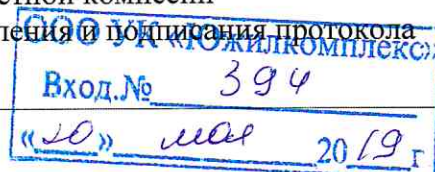 етной комиссии
ления и подписания протокола
ООО УК «Южилкомплекс»
Вход.№ 394
«20» мая 2019 г